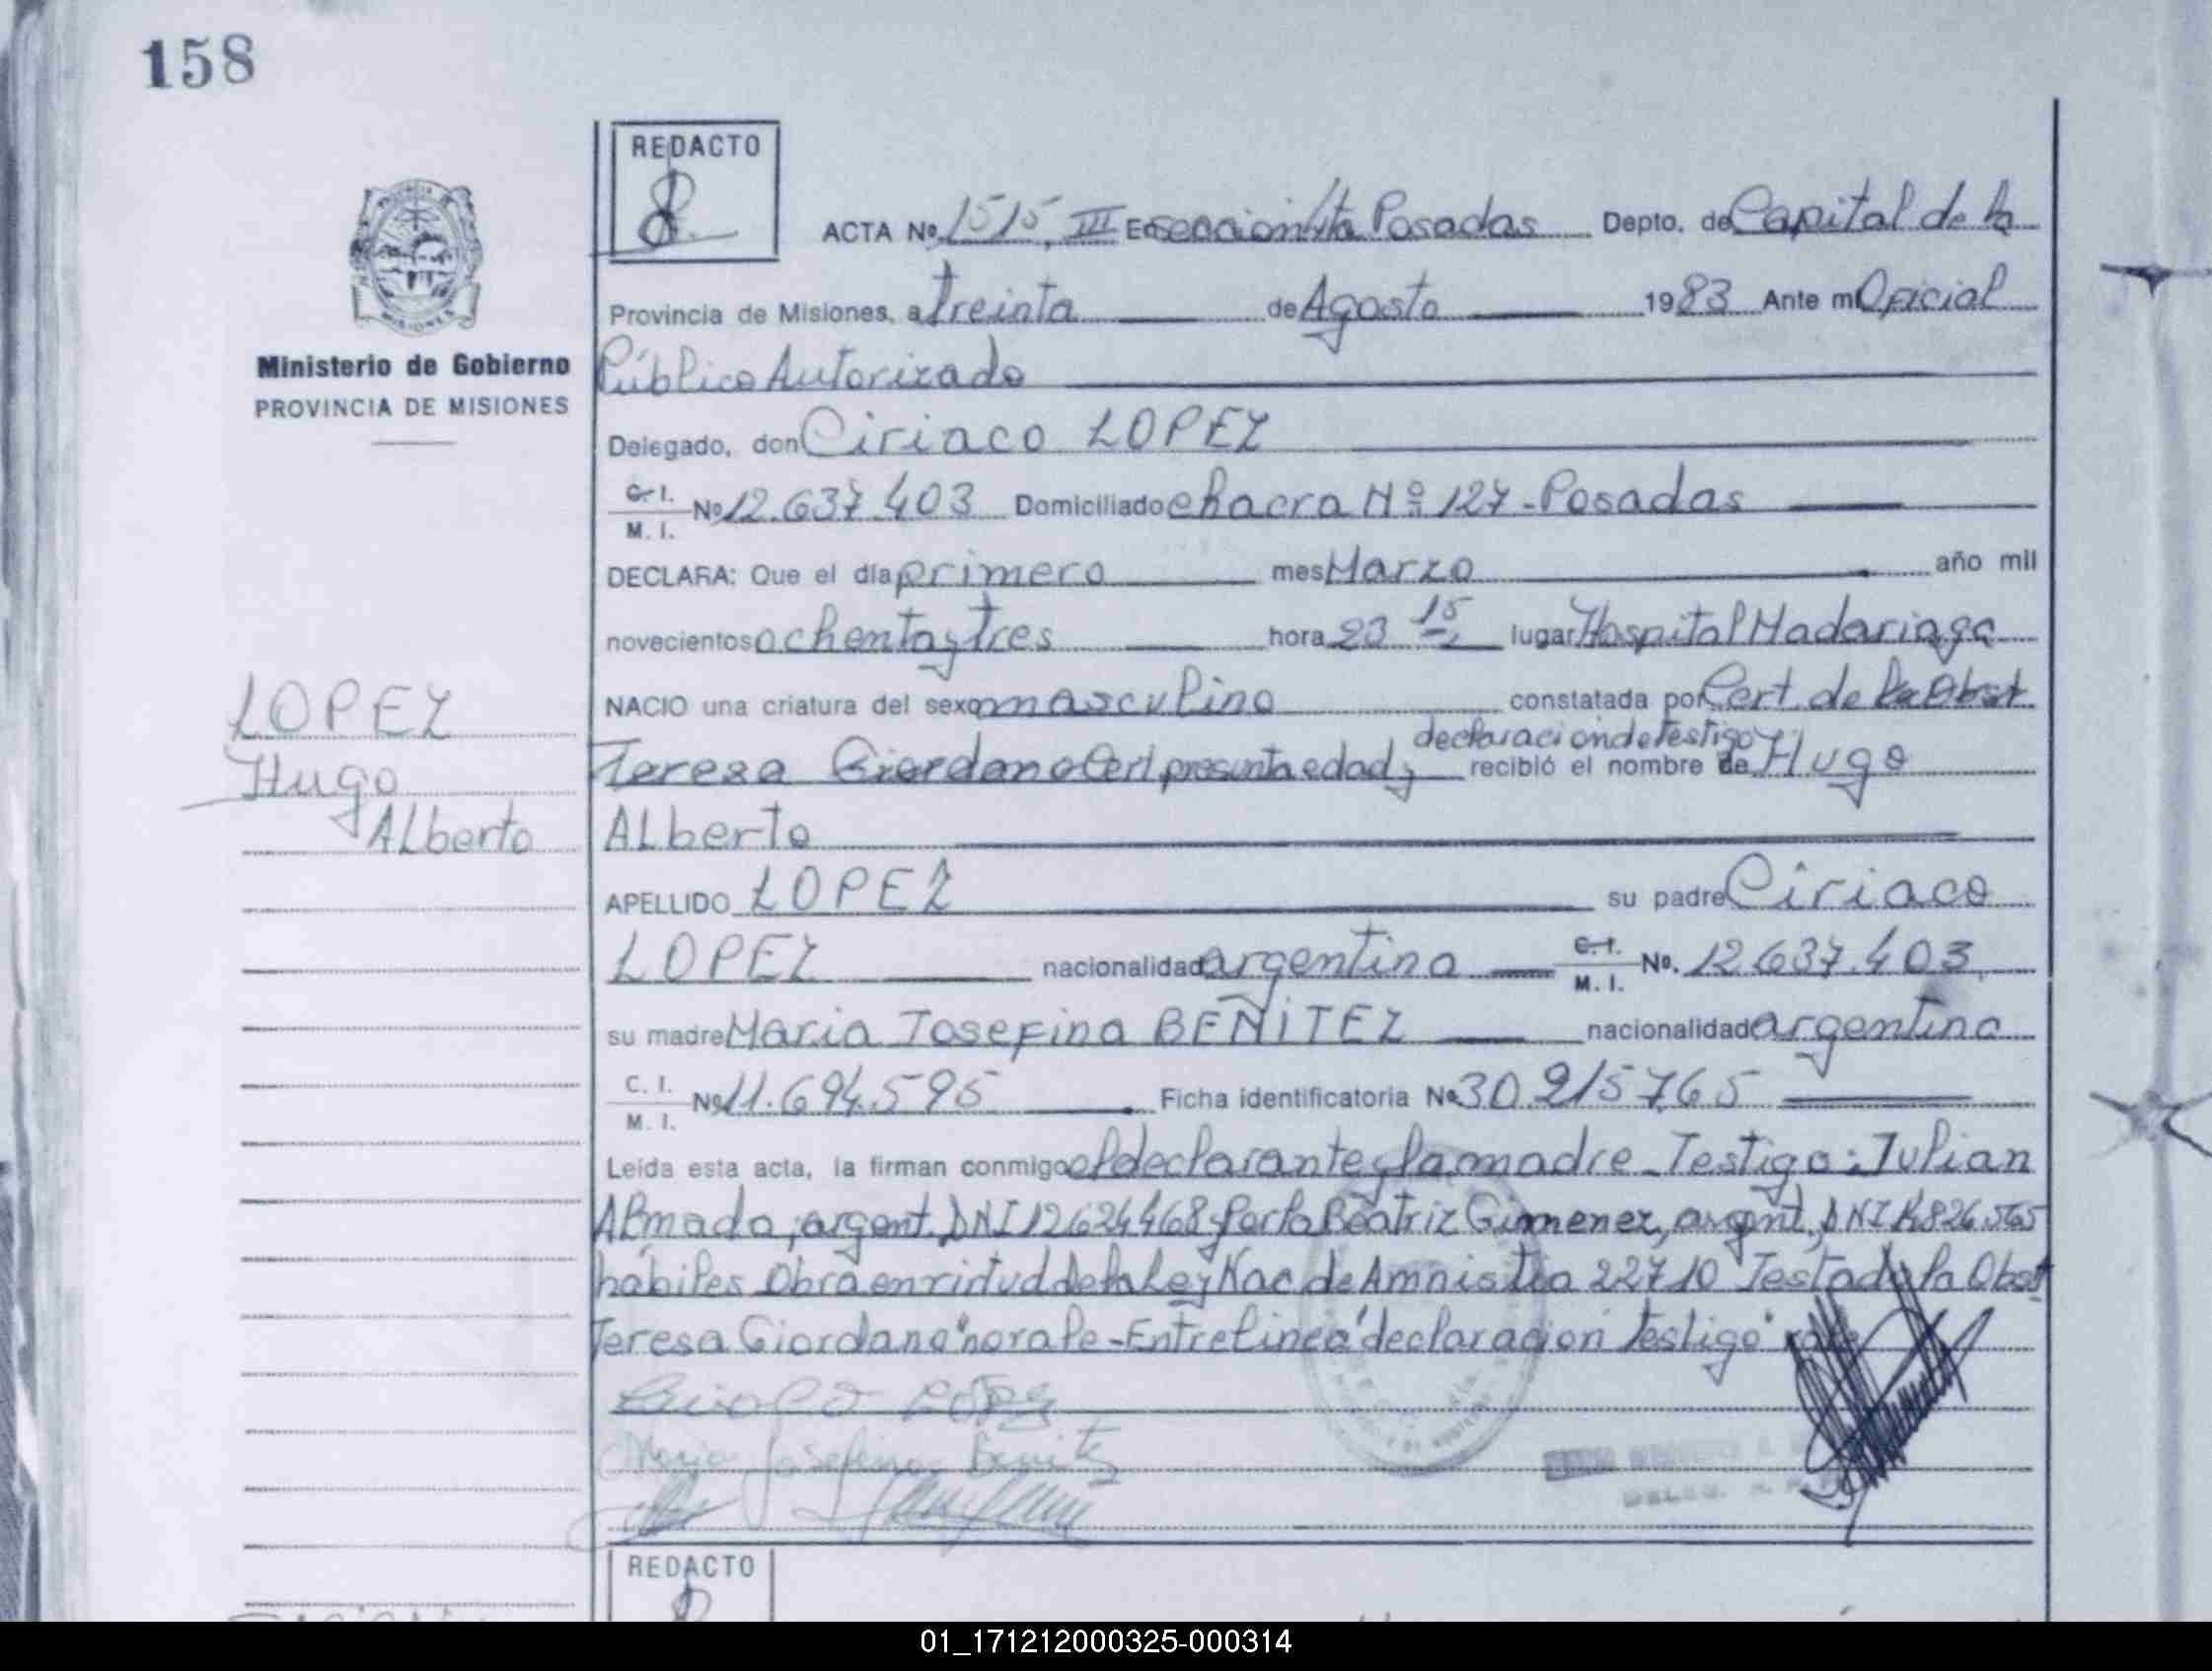 158
REDACTO
ACTA Nº 1515, III En seccion 4ta Posadas Depto. de Capital de la
Provincia de Misiones, a treinta de Agosto 1983 Ante mi Oficial
Ministerio de Gobierno
PROVINCIA DE MISIONES
Público Autorizado
Delegado, don Ciriaco LOPEZ
C. I. M. I. Nº 12.637.403 Domiciliado chacra Nº 127 - Posadas
DECLARA: Que el día primero mes Marzo año mil
novecientos ochenta y tres hora 23 15 lugar Hospital Madariaga
LOPEZ
Hugo
Alberto
NACIO una criatura del sexo masculino constatada por Cert. de la Obst
declaracion de testigo
Teresa Giordano Cert presunta edad y recibió el nombre de Hugo
Alberto
APELLIDO LOPEZ su padre Ciriaco
LOPEZ nacionalidad argentino C. I. M. I. No. 12.637.403
su madre Maria Josefina BENITEZ nacionalidad argentina
C. I. M. I. Nº 11.694.595 Ficha identificatoria Nº 30.215765
Leída esta acta, la firman conmigo el declarante y la madre - Testigo: Julian
Almada, argent. DNI 12624468 y Perla Beatriz Gimenez, argent, DNI
hábiles Obra en virtud de la Ley Nac de Amnistia 22710 Testado la Obst
Teresa Giordano "no vale - Entrelinea "declaracion testigo"
Lopez
Maria Josefina Benitez
REDACTO
01_171212000325-000314